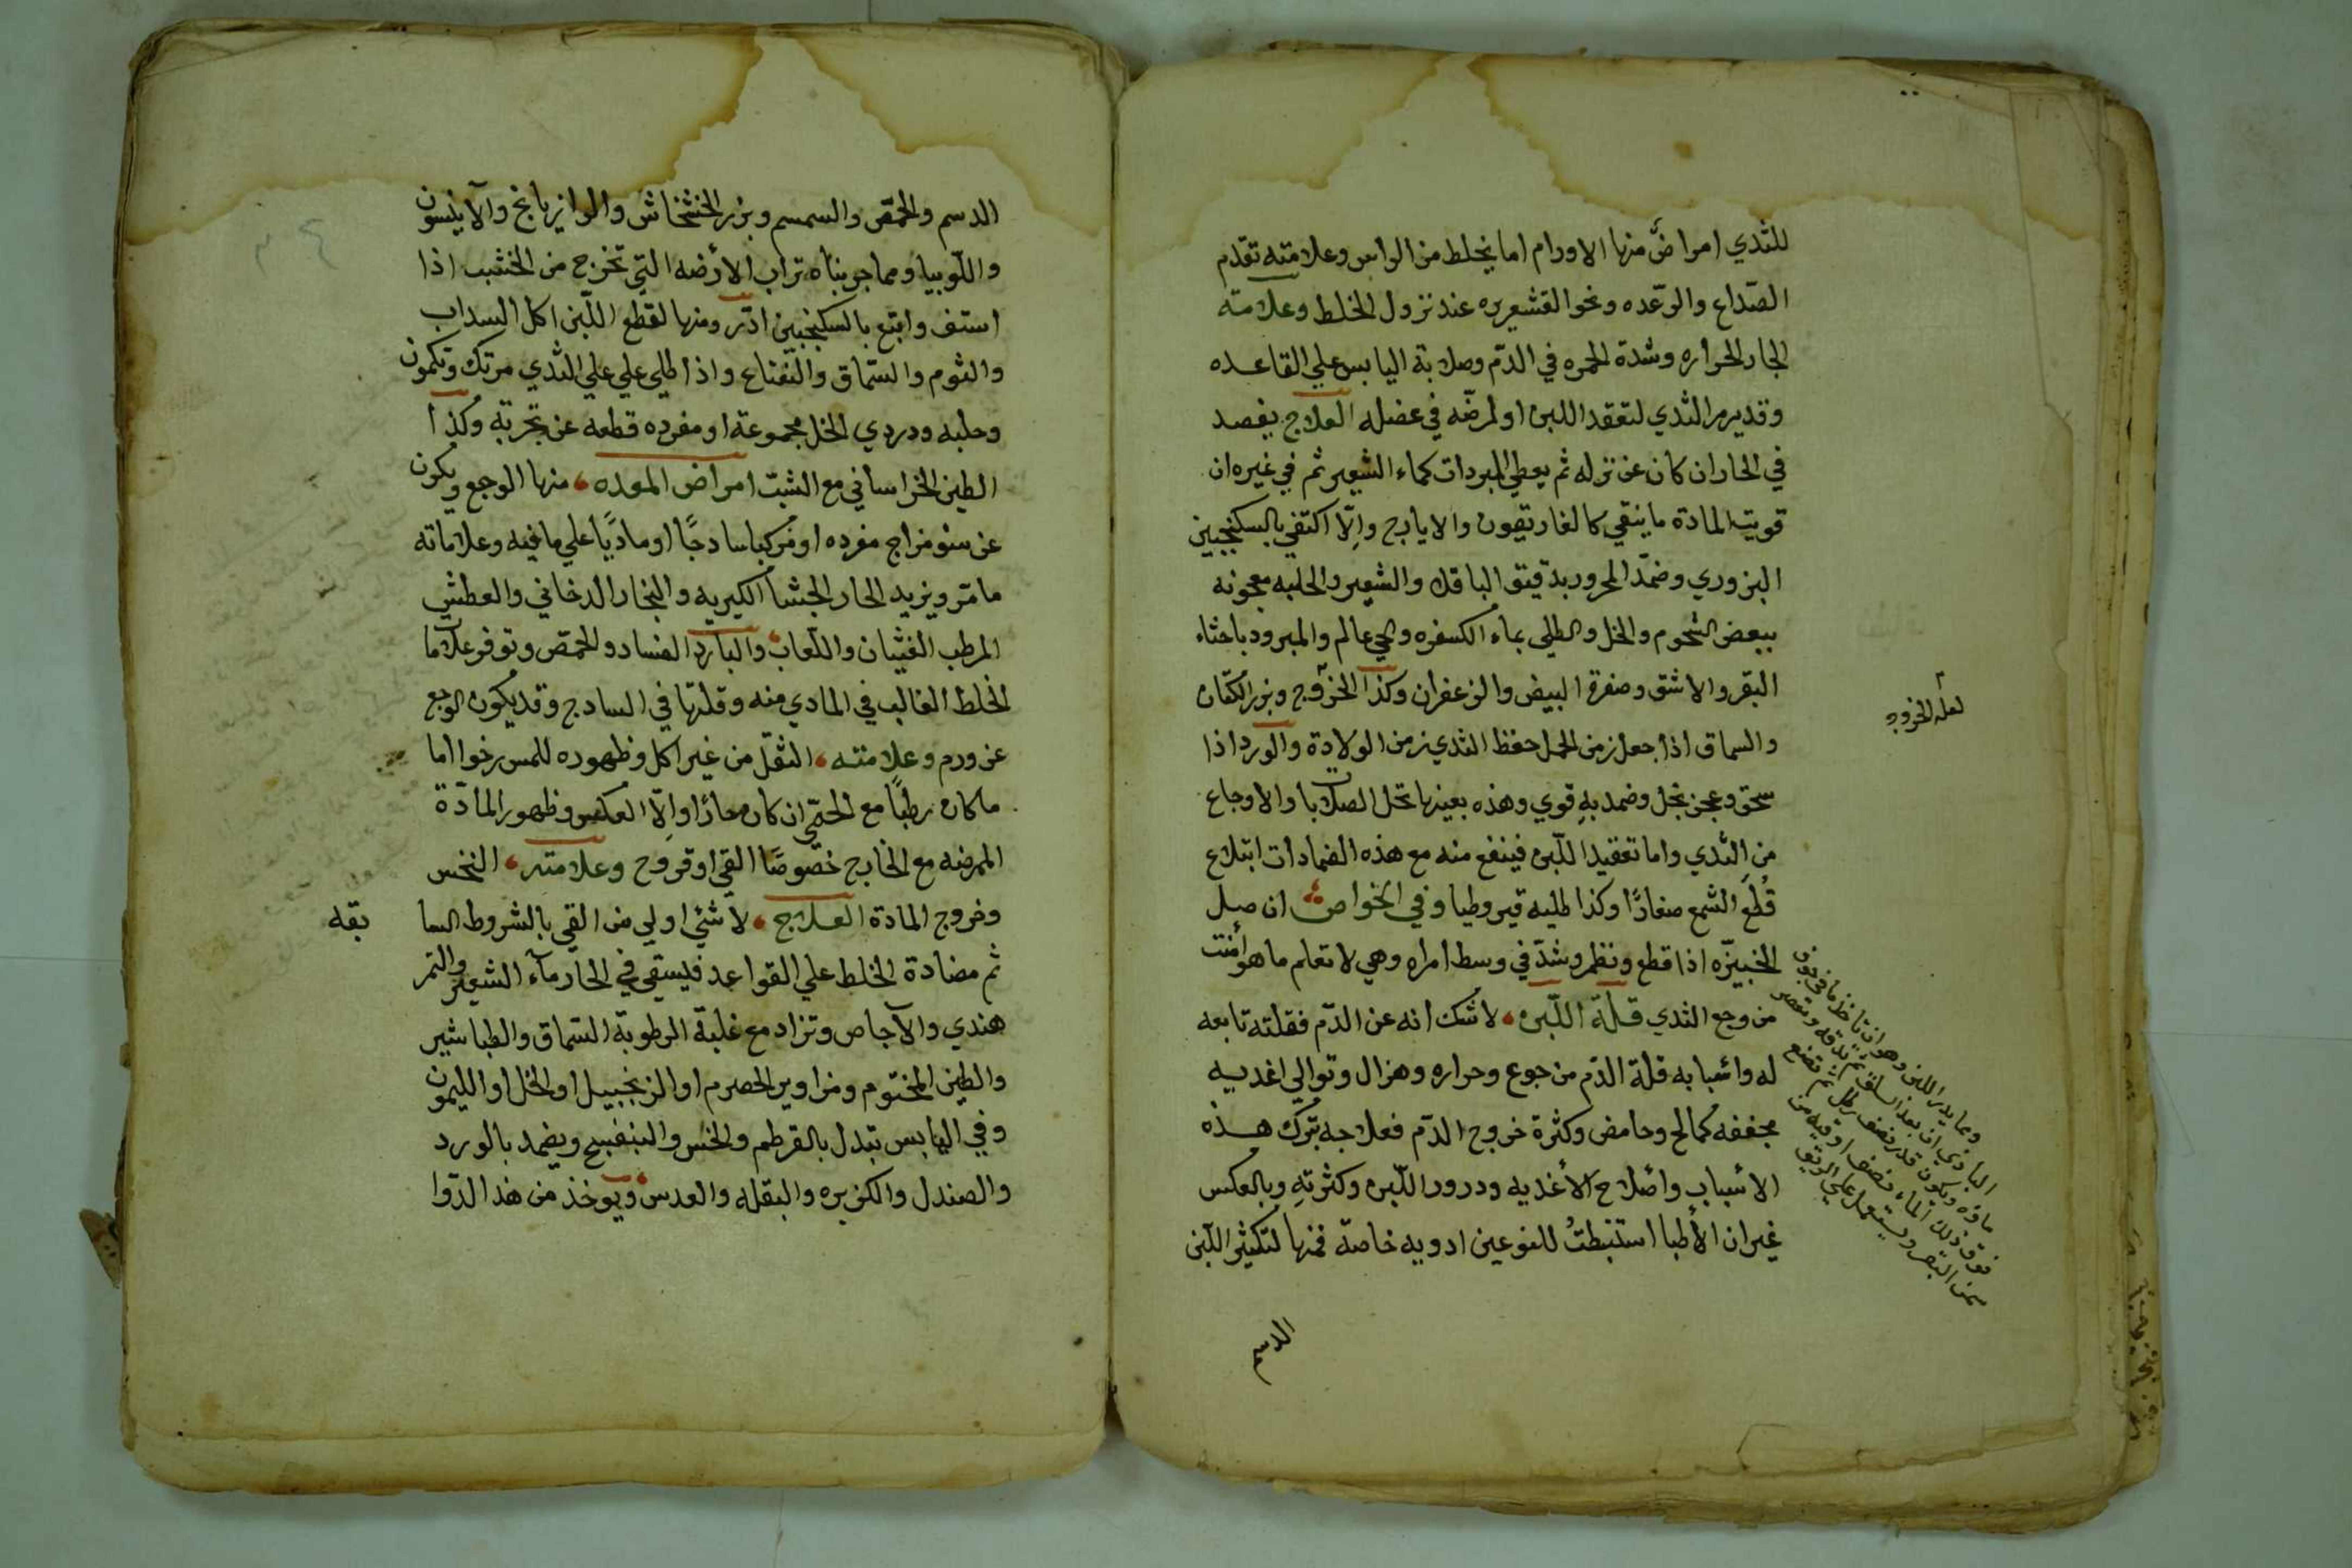 للثدي امراض منها الاورام اما بخلط من الراس وعلامته تقدم
الصداع والرعده ونحو القشعريره عند نزول الخلط وعلامته
الحار الحراره وشدة الحمره في الدم وصلابة اليابس علي القاعده
وقد يرم الثدي لتعقد اللبن او لمرضه في عضله العلاج يفصد
في الحار ان كان عن نزله ثم يعطي المبردات كماء الشعير ثم في غيره ان
قويت المادة ما ينقي كالغاريقون والايارج والا اكتفي بالسكنجبين
البزوري وضمد المحرور بدقيق الباقلا والشعير والحلبه معجونه
ببعض الشحوم والخل والطلي بماء الكسفره وحي عالم والمبرود باخثاء
البقر والاشق وصفرة البيض والزعفران وكذا الخروج وبزر الكتان
والسماق اذا جعل زمن الحمل حفظ الثدي زمن الولادة والورد اذا
سحق وعجن بخل وضمد به قوي وهذه بعينها تحل الصلابات والاوجاع
من الثدي واما تعقيد اللبن فينفع منه مع هذه الضمادات ابتلاع
قطع الشمع صغارا وكذا طليه قيروطيا وفي الخواص ان صل
الخبيزه اذا قطع ونظم وشد في وسط امراه وهي لا تعلم ما هو أمنت
من وجع الثدي قلة اللبن لا شك انه عن الدم فقلته تابعه
له واسبابه قلة الدم من جوع وحراره وهزال وتوالي اغديه
مجففه كمالح وحامض وكثرة خروج الدم فعلاجه بترك هذه
الأسباب وأصلاح الأغديه ودرور اللبن وكثرته وبالعكس
غير ان الأطبا استنبطت للنوعين ادويه خاصة فمنها لتكثير اللبن
الدسم
لعله الخروع
ومما يدر اللبن وهو ان تاخذ
سمن البقر ويستعمل علي الريق
الدسم والحمص والسمسم وبزر الخشخاش والرازيانج والآنيسون
واللوبيا ومما جربناه تراب الأرضه التي تخرج من الخشب اذا
استف واتبع بالسكنجبين ادر ومنها لقطع اللبن اكل السداب
والثوم والسماق والنعناع واذا طلي علي علي الثدي مرتك وكمون
وحلبه ودردي الخل مجموعة او مفرده قطعه عن تجربة وكذا
الطين الخراساني مع الشبت امراض المعده منها الوجع ويكون
عن سوء مزاج مفرده او مركبا سادجا او ماديا علي ما فيه وعلاماته
ما مر ويزيد الحار الجشا الكبريه والبخار الدخاني والعطش
المرطب الغثيان واللعاب والبارد الفساد والحمص وتوفر علاما
الخلط الغالب في المادي منه وقلتها في السادج وقد يكون الوجع
عن ورم وعلامته الثقل من غير اكل وظهوره للمس رخوا اما
ما كان رطبا مع الحمي ان كان حارا والا العكس وظهور المادة
الممرضه مع الخارج خصوصا القي او قروح وعلامته النخس
وخروج المادة العلاج لا شي اولي من القي بالشروط السا
بقه
ثم مضادة الخلط علي القواعد فيسقي في الحار مآء الشعير والتمر
هندي والآجاص وتزاد مع غلبة الرطوبة السماق والطباشير
والطين المختوم ومزاوير الحصرم او الزنجبيل او الخل او الليمون
وفي اليابس تبدل بالقرطم والخس والبنفسج ويضمد بالورد
والصندل والكزبره والبقله والعدس ويوخذ من هذا الدوا
٣٤